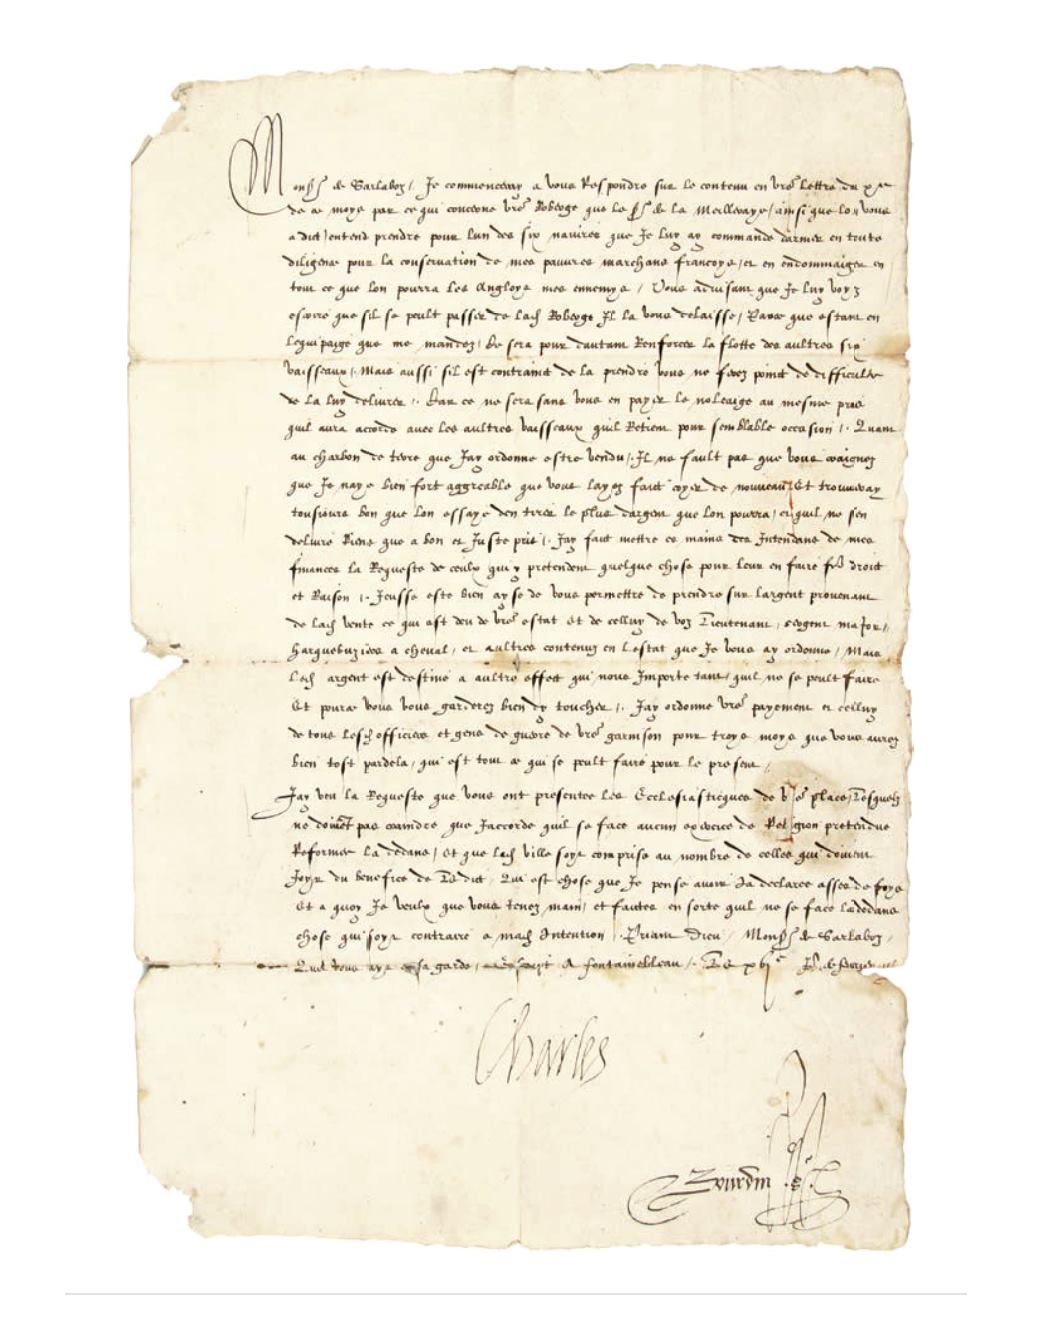 Monsr de Sarlaboz, Je commenceray a vous Respondre sur le contenu en vre lettre du xe
de ce moys par ce qui concerne vre Roberge que le sr de la Meilleraye, ainsi que lon vous
a dict, entend prendre pour lun des six navires que Je luy ay commande darmer en toute
diligence pour la conservation de mes pauvres marchans francoys, et en endommaiger en
tout ce que lon pourra les Angloys mes ennemys, Vous advisant que Je luy
escrire que sil se peult passer de lad Roberge Il la vous delaisse, Parce que estant en
lequipaige que me mandez, Ce sera pour dautant Renforcer la flotte des aultres six
vaisseaux, Mais aussi sil est contrainct de la prendre vous ne ferez poinct de difficulte
de la luy delivrer, Car ce ne sera sans vous en payer le noleaige au mesme pris
quil aura accorde avec les aultres vaisseaux quil Retient pour semblable occasion, Quant
au charbon de terre que Jay ordonne estre vendu, Il ne fault pas que vous craignez
que Je naye bien fort aggreable que vous layez faict cryer de nouveau, Et trouveray
tousiours bon que lon essaye den tirer le plus dargent que lon pourra, et quil ne sen
delivre Riens que a bon et Juste pris, Jay faict mettre es mains des Intendans de mes
finances la Requeste de ceulx qui y pretendent quelque chose pour leur en faire droict
et Raison, Jeusse este bien ayse de vous permettre de prendre sur largent provenant
de lad vente ce qui est deu de vre estat Et de celluy de voz Lieutenant, sergent major,
harquebuziers a cheval, et aultres contenuz en lestat que Je vous ay ordonne, Mais
led argent est destine a aultre effect qui nous Importe tant, quil ne se peult faire
Et pource vous vous garderez bien dy toucher, Jay ordonne vre payement et celluy
de tous lesd officiers et gens de guerre de vre garnison pour troys moys que vous aurez
bien tost pardela, qui est tout ce qui se peult faire pour le present,
Jay veu la Requeste que vous ont presentee les Ecclesiasticques de vre place, Lesquelz
ne doivent pas craindre que Jaccorde quil se face aucun exercice de Religion pretendue
Reformee la dedans, Et que lad ville soyt comprise au nombre de celles qui doivent
Joyr du benefice de Ledict, Qui est chose que Je pense avoir Ja declaree assez de foys
Et a quoy Je veulx que vous tenez main, et faictes en sorte quil ne se face la dedans
chose qui soyt contraire a mad Intention, Priant Dieu, Monsr de Sarlaboz,
Quil vous ayt en sa garde, A fontainebleau, Le xvie
Charles
Bourdin